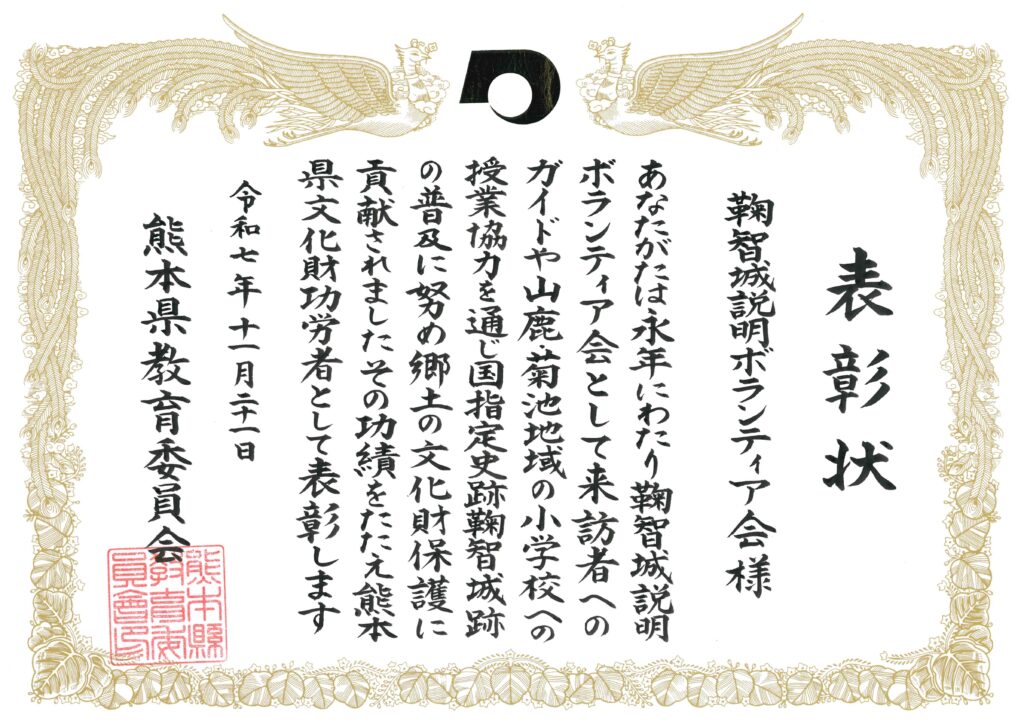 表彰状
鞠智城説明ボランティア会様
あなたがたは永年にわたり鞠智城説明
ボランティア会として来訪者への
ガイドや山鹿・菊池地域の小学校への
授業協力を通じ国指定史跡鞠智城跡
の普及に努め郷土の文化財保護に
貢献されましたその功績をたたえ熊本
県文化財功労者として表彰します
令和七年十一月二十一日
熊本県教育委員会
熊本縣
教育委
員會印